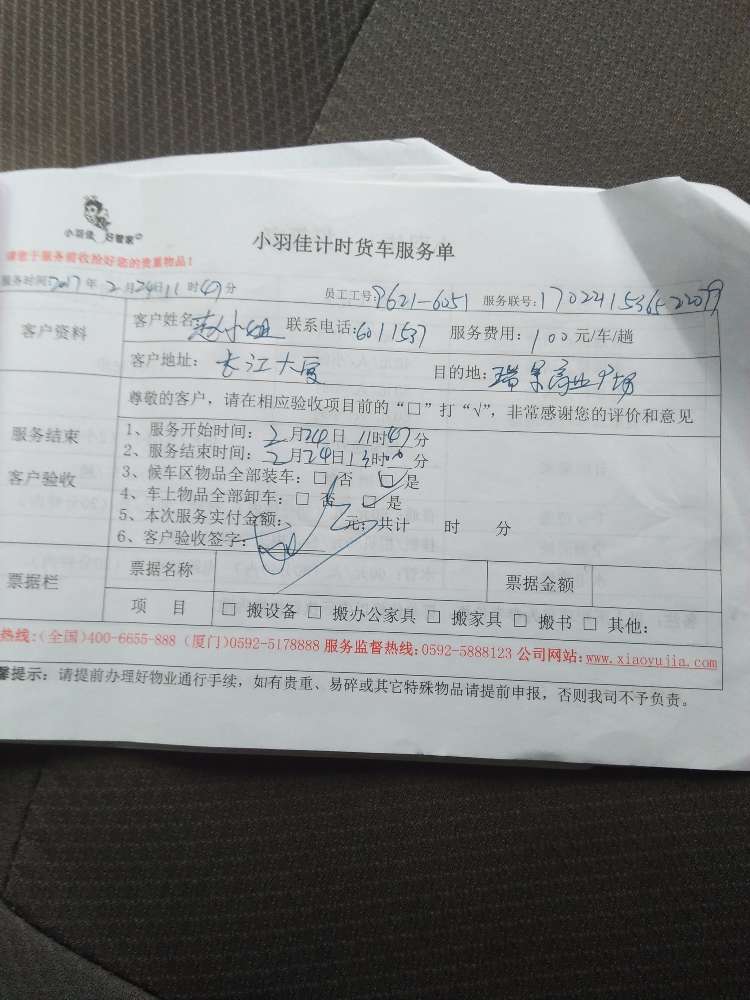 小羽佳 好管家
小羽佳计时货车服务单
请您于服务前收拾好您的贵重物品！
服务时间：2017年2月24日11时47分 员工工号：9621-6051 服务联号：
客户资料 客户姓名 小姐 联系电话：6011537 服务费用：100元/车/趟
客户地址：长江大厦 目的地：瑞景商业广场
尊敬的客户，请在相应验收项目前的“□”打“√”，非常感谢您的评价和意见
服务结束
客户验收
1、服务开始时间：2月24日11时47分
2、服务结束时间：2月24日13时分
3、候车区物品全部装车：□ 否 □ 是
4、车上物品全部卸车：□ 否 □ 是
5、本次服务实付金额： 元，共计 时 分
6、客户验收签字：
票据栏 票据名称 票据金额
项 目 □ 搬设备 □ 搬办公家具 □ 搬家具 □ 搬书 □ 其他：
热线：(全国)400-6655-888 (厦门)0592-5178888 服务监督热线：0592-5888123 公司网站：www.xiaoyujia.com
馨提示：请提前办理好物业通行手续，如有贵重、易碎或其它特殊物品请提前申报，否则我司不予负责。